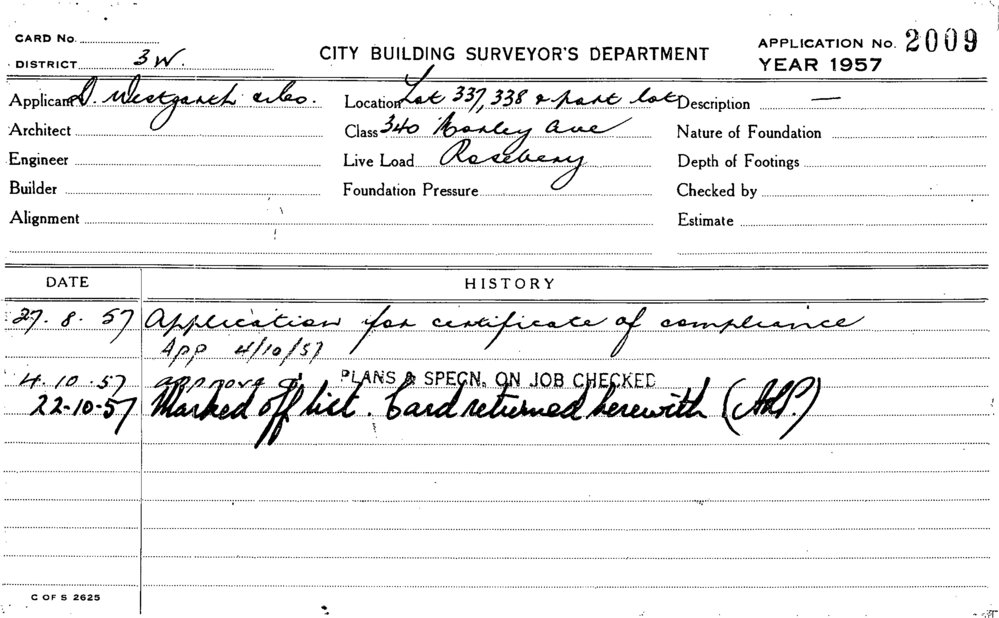 CARD No.
DISTRICT 3W.
CITY BUILDING SURVEYOR'S DEPARTMENT
APPLICATION No. 2009
YEAR 1957
Applicant D. Westgarth & Co.
Location Lot 337, 338 & part lot
Description —
Architect
Class 340 Morley Ave
Nature of Foundation
Engineer
Live Load Rosebery
Depth of Footings
Builder
Foundation Pressure
Checked by
Alignment
Estimate
DATE HISTORY
27. 8. 57 Application for certificate of compliance
App 4/10/57
4. 10. 57 approved PLANS & SPECN. ON JOB CHECKED
22-10-57 Marked off list. Card returned herewith
C OF S 2625